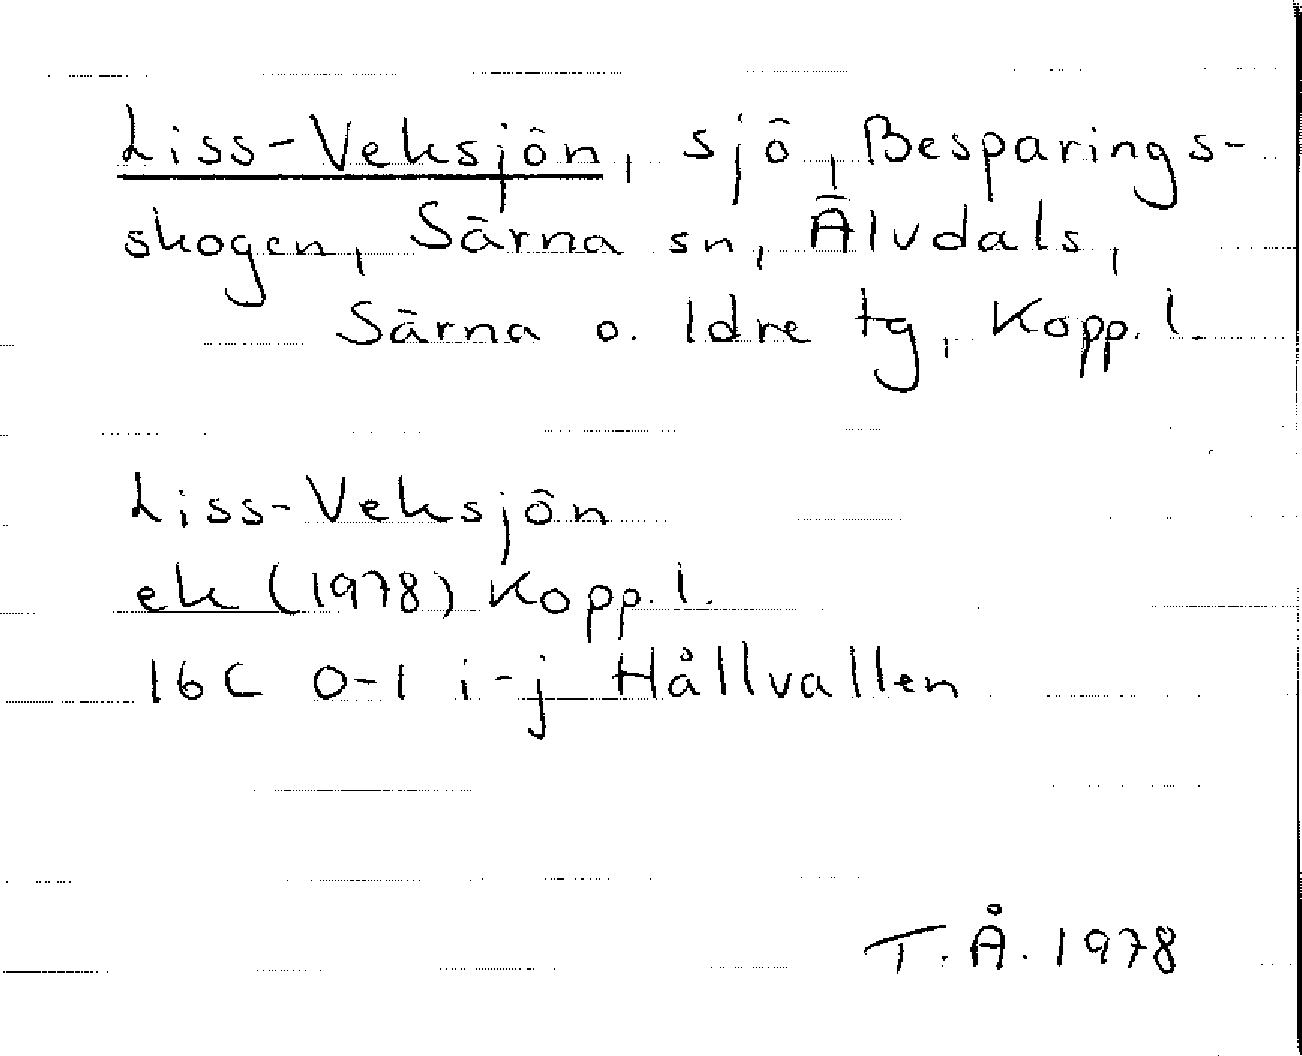 Liss-Veksjön, sjö, Besparings-
skogen, Särna sn, Älvdals,
Särna o. Idre tg, Kopp. l.
Liss-Veksjön
ek (1978) Kopp. l.
16C 0-1 i-j Hållvallen
T.Å. 1978